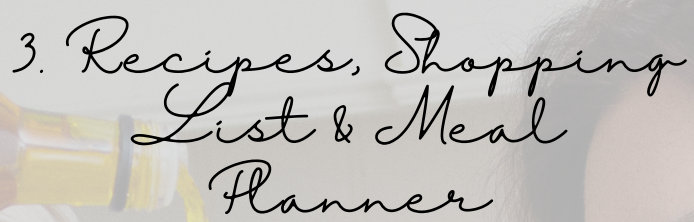 3. Recipes, Shopping
List & Meal
Planner